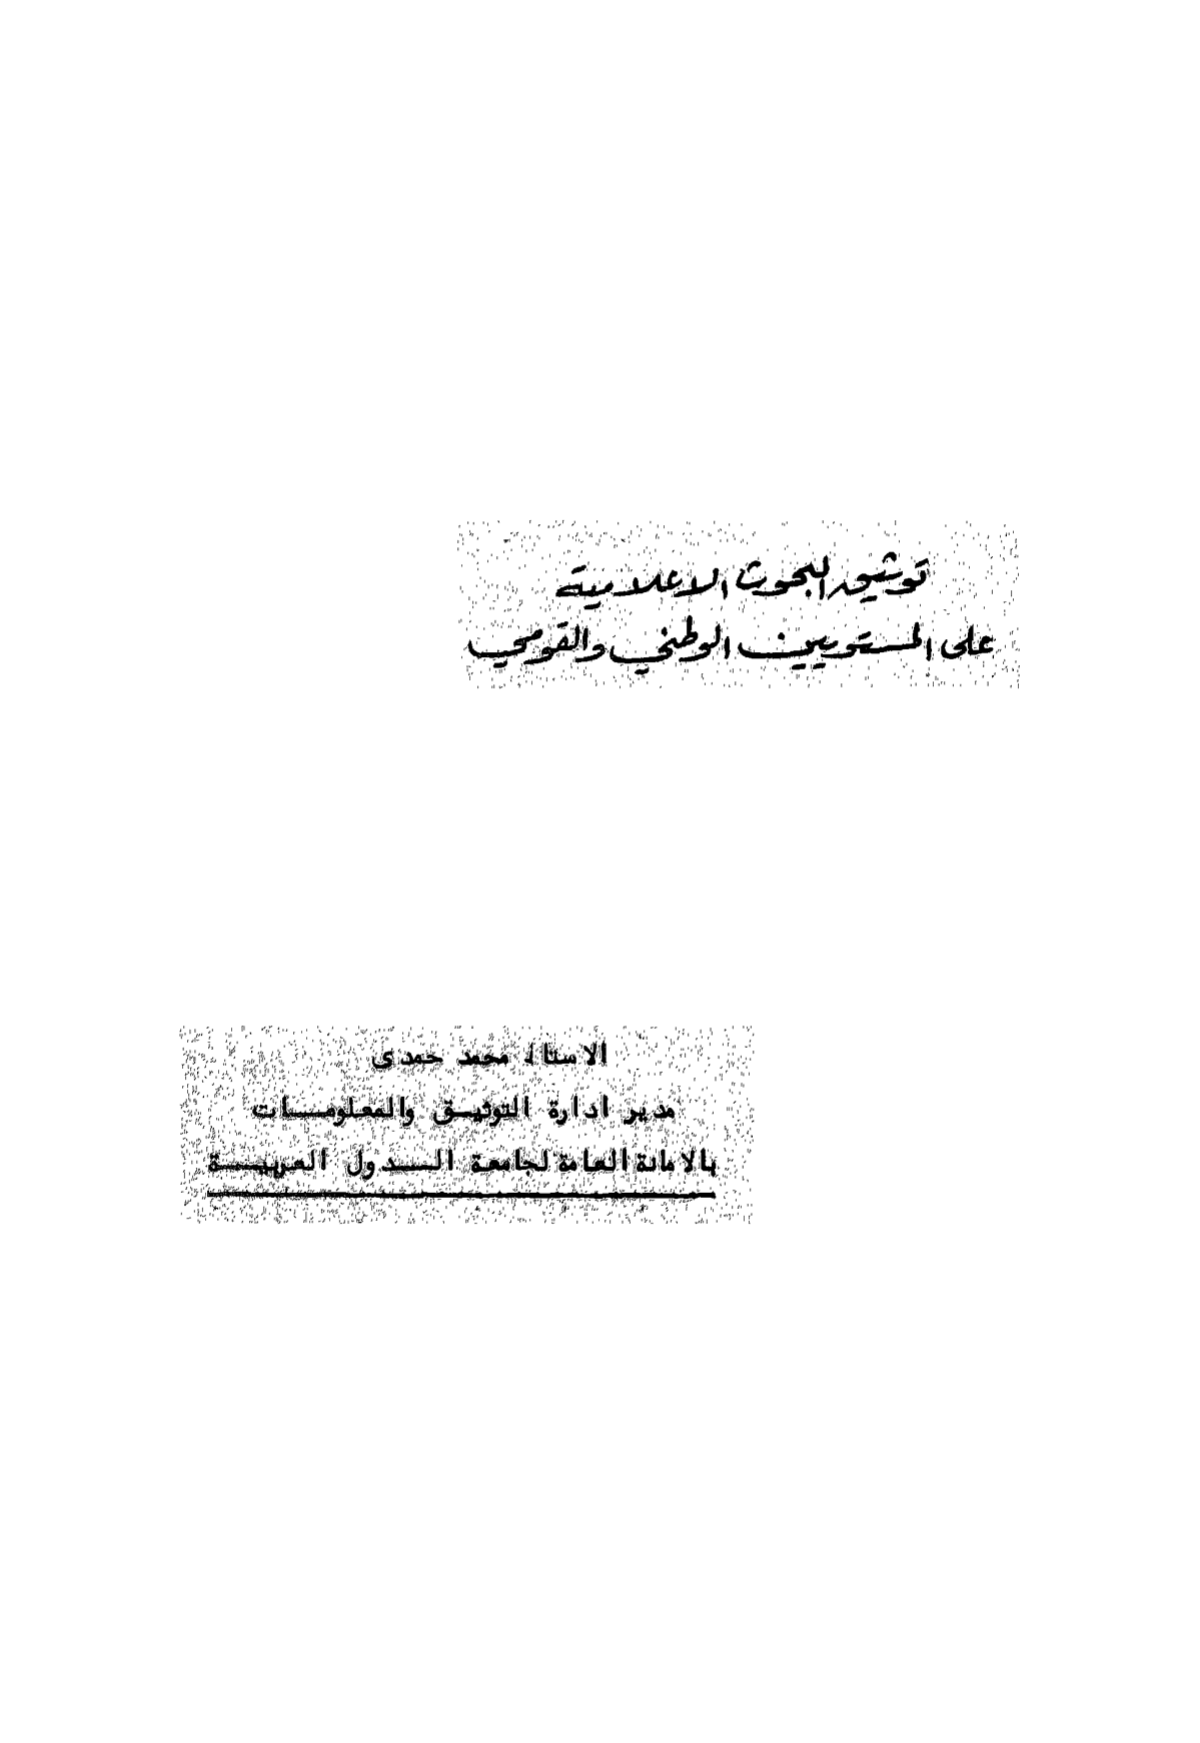 توثيق البحوث الاعلامية
على المستويين الوطني والقومي
الاستاذ محمد حمدى
مدير ادارة التوثيق والمعلومات
بالامانة العامة لجامعة الدول العربية